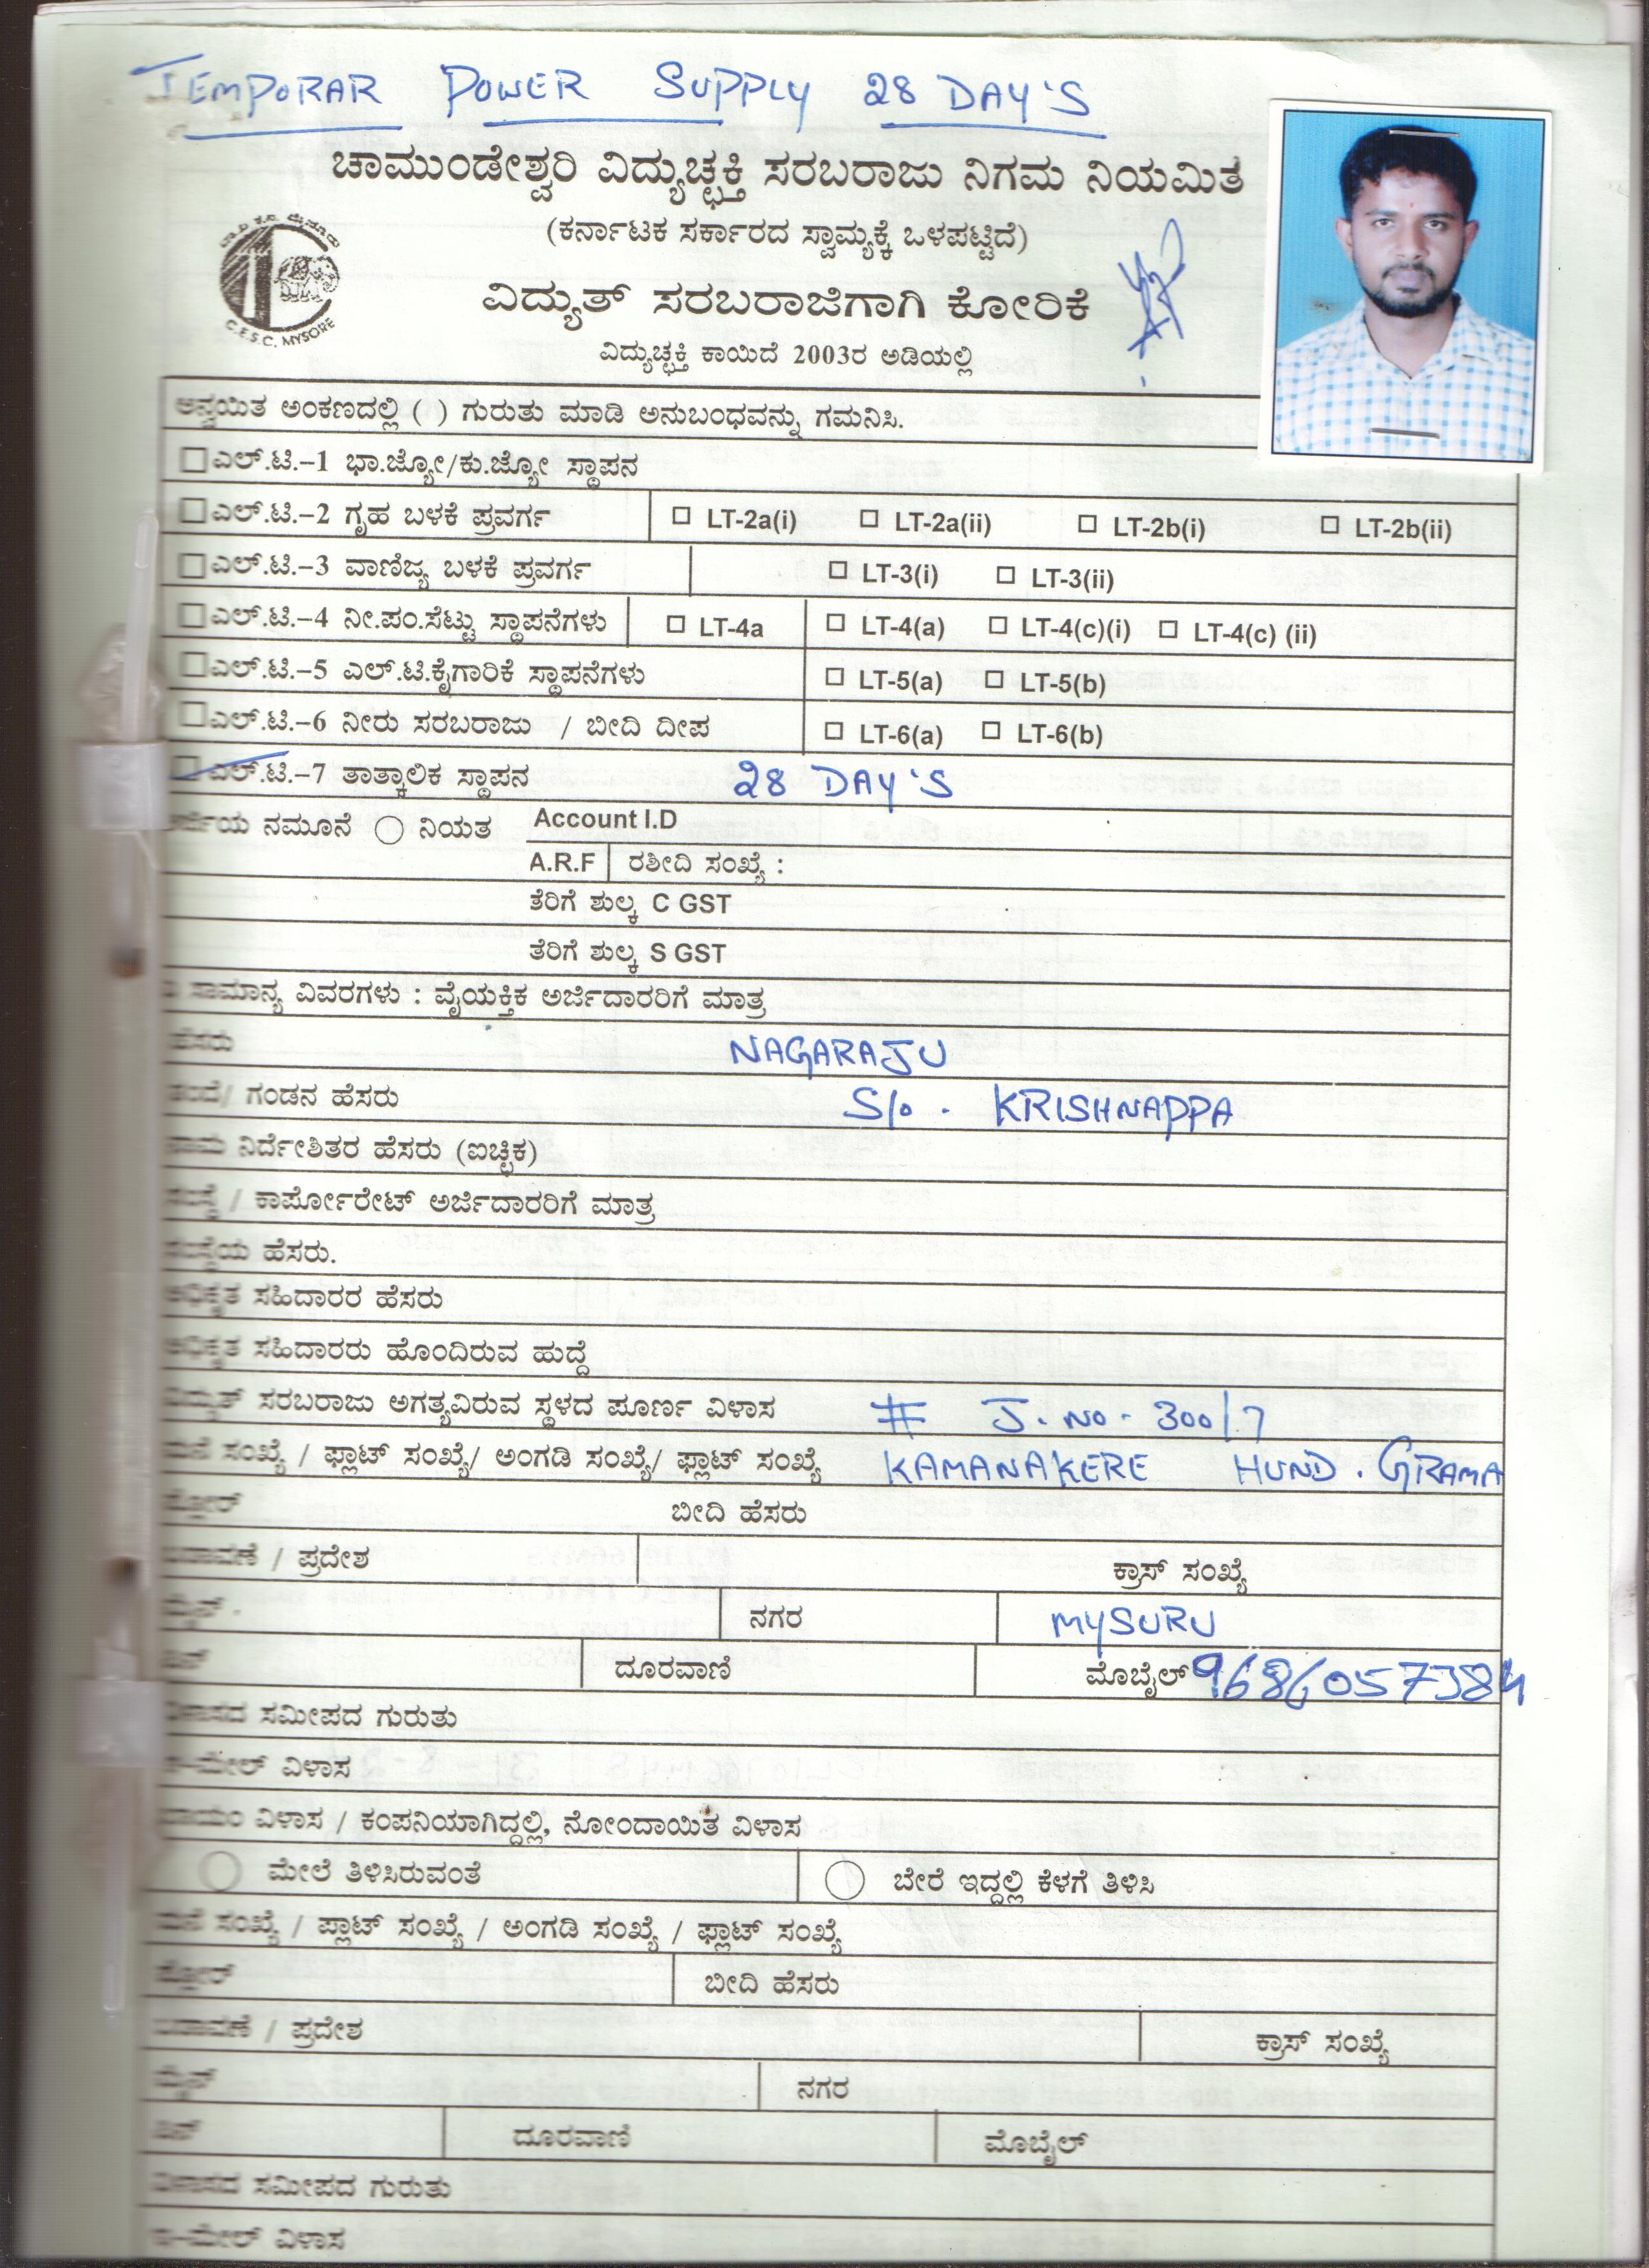 TEMPORAR POWER SUPPLY 28 DAY'S
ಚಾಮುಂಡೇಶ್ವರಿ ವಿದ್ಯುಚ್ಛಕ್ತಿ ಸರಬರಾಜು ನಿಗಮ ನಿಯಮಿತ
(ಕರ್ನಾಟಕ ಸರ್ಕಾರದ ಸ್ವಾಮ್ಯಕ್ಕೆ ಒಳಪಟ್ಟಿದೆ)
C.E.S.C. MYSORE
ವಿದ್ಯುತ್ ಸರಬರಾಜಿಗಾಗಿ ಕೋರಿಕೆ
ವಿದ್ಯುಚ್ಛಕ್ತಿ ಕಾಯಿದೆ 2003ರ ಅಡಿಯಲ್ಲಿ
ಅನ್ವಯಿತ ಅಂಕಣದಲ್ಲಿ ( ) ಗುರುತು ಮಾಡಿ ಅನುಬಂಧವನ್ನು ಗಮನಿಸಿ.
☐ ಎಲ್.ಟಿ.–1 ಭಾ.ಜ್ಯೋ/ಕು.ಜ್ಯೋ ಸ್ಥಾಪನ
☐ ಎಲ್.ಟಿ.–2 ಗೃಹ ಬಳಕೆ ಪ್ರವರ್ಗ ☐ LT-2a(i) ☐ LT-2a(ii) ☐ LT-2b(i) ☐ LT-2b(ii)
☐ ಎಲ್.ಟಿ.–3 ವಾಣಿಜ್ಯ ಬಳಕೆ ಪ್ರವರ್ಗ ☐ LT-3(i) ☐ LT-3(ii)
☐ ಎಲ್.ಟಿ.–4 ನೀ.ಪಂ.ಸೆಟ್ಟು ಸ್ಥಾಪನೆಗಳು ☐ LT-4a ☐ LT-4(a) ☐ LT-4(c)(i) ☐ LT-4(c) (ii)
☐ ಎಲ್.ಟಿ.–5 ಎಲ್.ಟಿ.ಕೈಗಾರಿಕೆ ಸ್ಥಾಪನೆಗಳು ☐ LT-5(a) ☐ LT-5(b)
☐ ಎಲ್.ಟಿ.–6 ನೀರು ಸರಬರಾಜು / ಬೀದಿ ದೀಪ ☐ LT-6(a) ☐ LT-6(b)
☐ ಎಲ್.ಟಿ.–7 ತಾತ್ಕಾಲಿಕ ಸ್ಥಾಪನ 28 DAY'S
ಅರ್ಜಿಯ ನಮೂನೆ ◯ ನಿಯತ Account I.D
A.R.F ರಶೀದಿ ಸಂಖ್ಯೆ :
ತೆರಿಗೆ ಶುಲ್ಕ C GST
ತೆರಿಗೆ ಶುಲ್ಕ S GST
ಸಾಮಾನ್ಯ ವಿವರಗಳು : ವೈಯಕ್ತಿಕ ಅರ್ಜಿದಾರರಿಗೆ ಮಾತ್ರ
ಹೆಸರು NAGARAJU
ತಂದೆ/ ಗಂಡನ ಹೆಸರು S/o. KRISHNAPPA
ನಾಮ ನಿರ್ದೇಶಿತರ ಹೆಸರು (ಐಚ್ಛಿಕ)
ಸಂಸ್ಥೆ / ಕಾರ್ಪೋರೇಟ್ ಅರ್ಜಿದಾರರಿಗೆ ಮಾತ್ರ
ಸಂಸ್ಥೆಯ ಹೆಸರು.
ಅಧಿಕೃತ ಸಹಿದಾರರ ಹೆಸರು
ಅಧಿಕೃತ ಸಹಿದಾರರು ಹೊಂದಿರುವ ಹುದ್ದೆ
ವಿದ್ಯುತ್ ಸರಬರಾಜು ಅಗತ್ಯವಿರುವ ಸ್ಥಳದ ಪೂರ್ಣ ವಿಳಾಸ # J. NO - 300/7
ಮನೆ ಸಂಖ್ಯೆ / ಫ್ಲಾಟ್ ಸಂಖ್ಯೆ/ ಅಂಗಡಿ ಸಂಖ್ಯೆ/ ಫ್ಲಾಟ್ ಸಂಖ್ಯೆ KAMANAKERE HUND. GRAMA
ಫ್ಲೋರ್ ಬೀದಿ ಹೆಸರು
ಬಡಾವಣೆ / ಪ್ರದೇಶ ಕ್ರಾಸ್ ಸಂಖ್ಯೆ
ಮೈನ್ ನಗರ MYSURU
ಪಿನ್ ದೂರವಾಣಿ ಮೊಬೈಲ್ 9686057384
ವಿಳಾಸದ ಸಮೀಪದ ಗುರುತು
ಇ–ಮೇಲ್ ವಿಳಾಸ
ಖಾಯಂ ವಿಳಾಸ / ಕಂಪನಿಯಾಗಿದ್ದಲ್ಲಿ, ನೋಂದಾಯಿತ ವಿಳಾಸ
◯ ಮೇಲೆ ತಿಳಿಸಿರುವಂತೆ ◯ ಬೇರೆ ಇದ್ದಲ್ಲಿ ಕೆಳಗೆ ತಿಳಿಸಿ
ಮನೆ ಸಂಖ್ಯೆ / ಪ್ಲಾಟ್ ಸಂಖ್ಯೆ / ಅಂಗಡಿ ಸಂಖ್ಯೆ / ಫ್ಲಾಟ್ ಸಂಖ್ಯೆ
ಫ್ಲೋರ್ ಬೀದಿ ಹೆಸರು
ಬಡಾವಣೆ / ಪ್ರದೇಶ ಕ್ರಾಸ್ ಸಂಖ್ಯೆ
ಮೈನ್ ನಗರ
ಪಿನ್ ದೂರವಾಣಿ ಮೊಬೈಲ್
ವಿಳಾಸದ ಸಮೀಪದ ಗುರುತು
ಇ–ಮೇಲ್ ವಿಳಾಸ